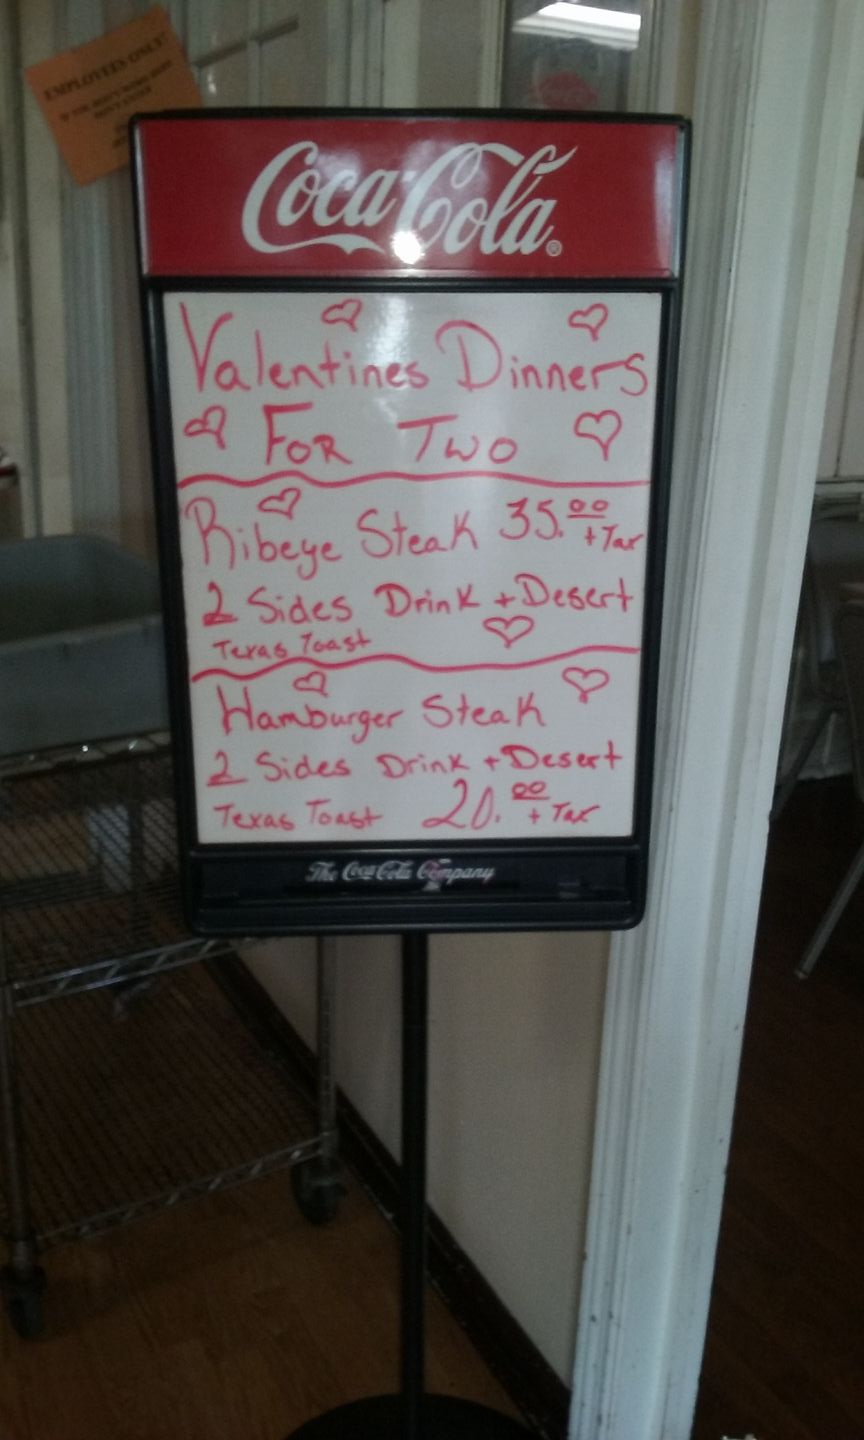 EMPLOYEES ONLY!
Coca-Cola®
Valentines Dinners
For Two
Ribeye Steak 35.00 + Tax
2 Sides Drink + Desert
Texas Toast
Hamburger Steak
2 Sides Drink + Desert
Texas Toast 20.00 + Tax
The Coca-Cola Company